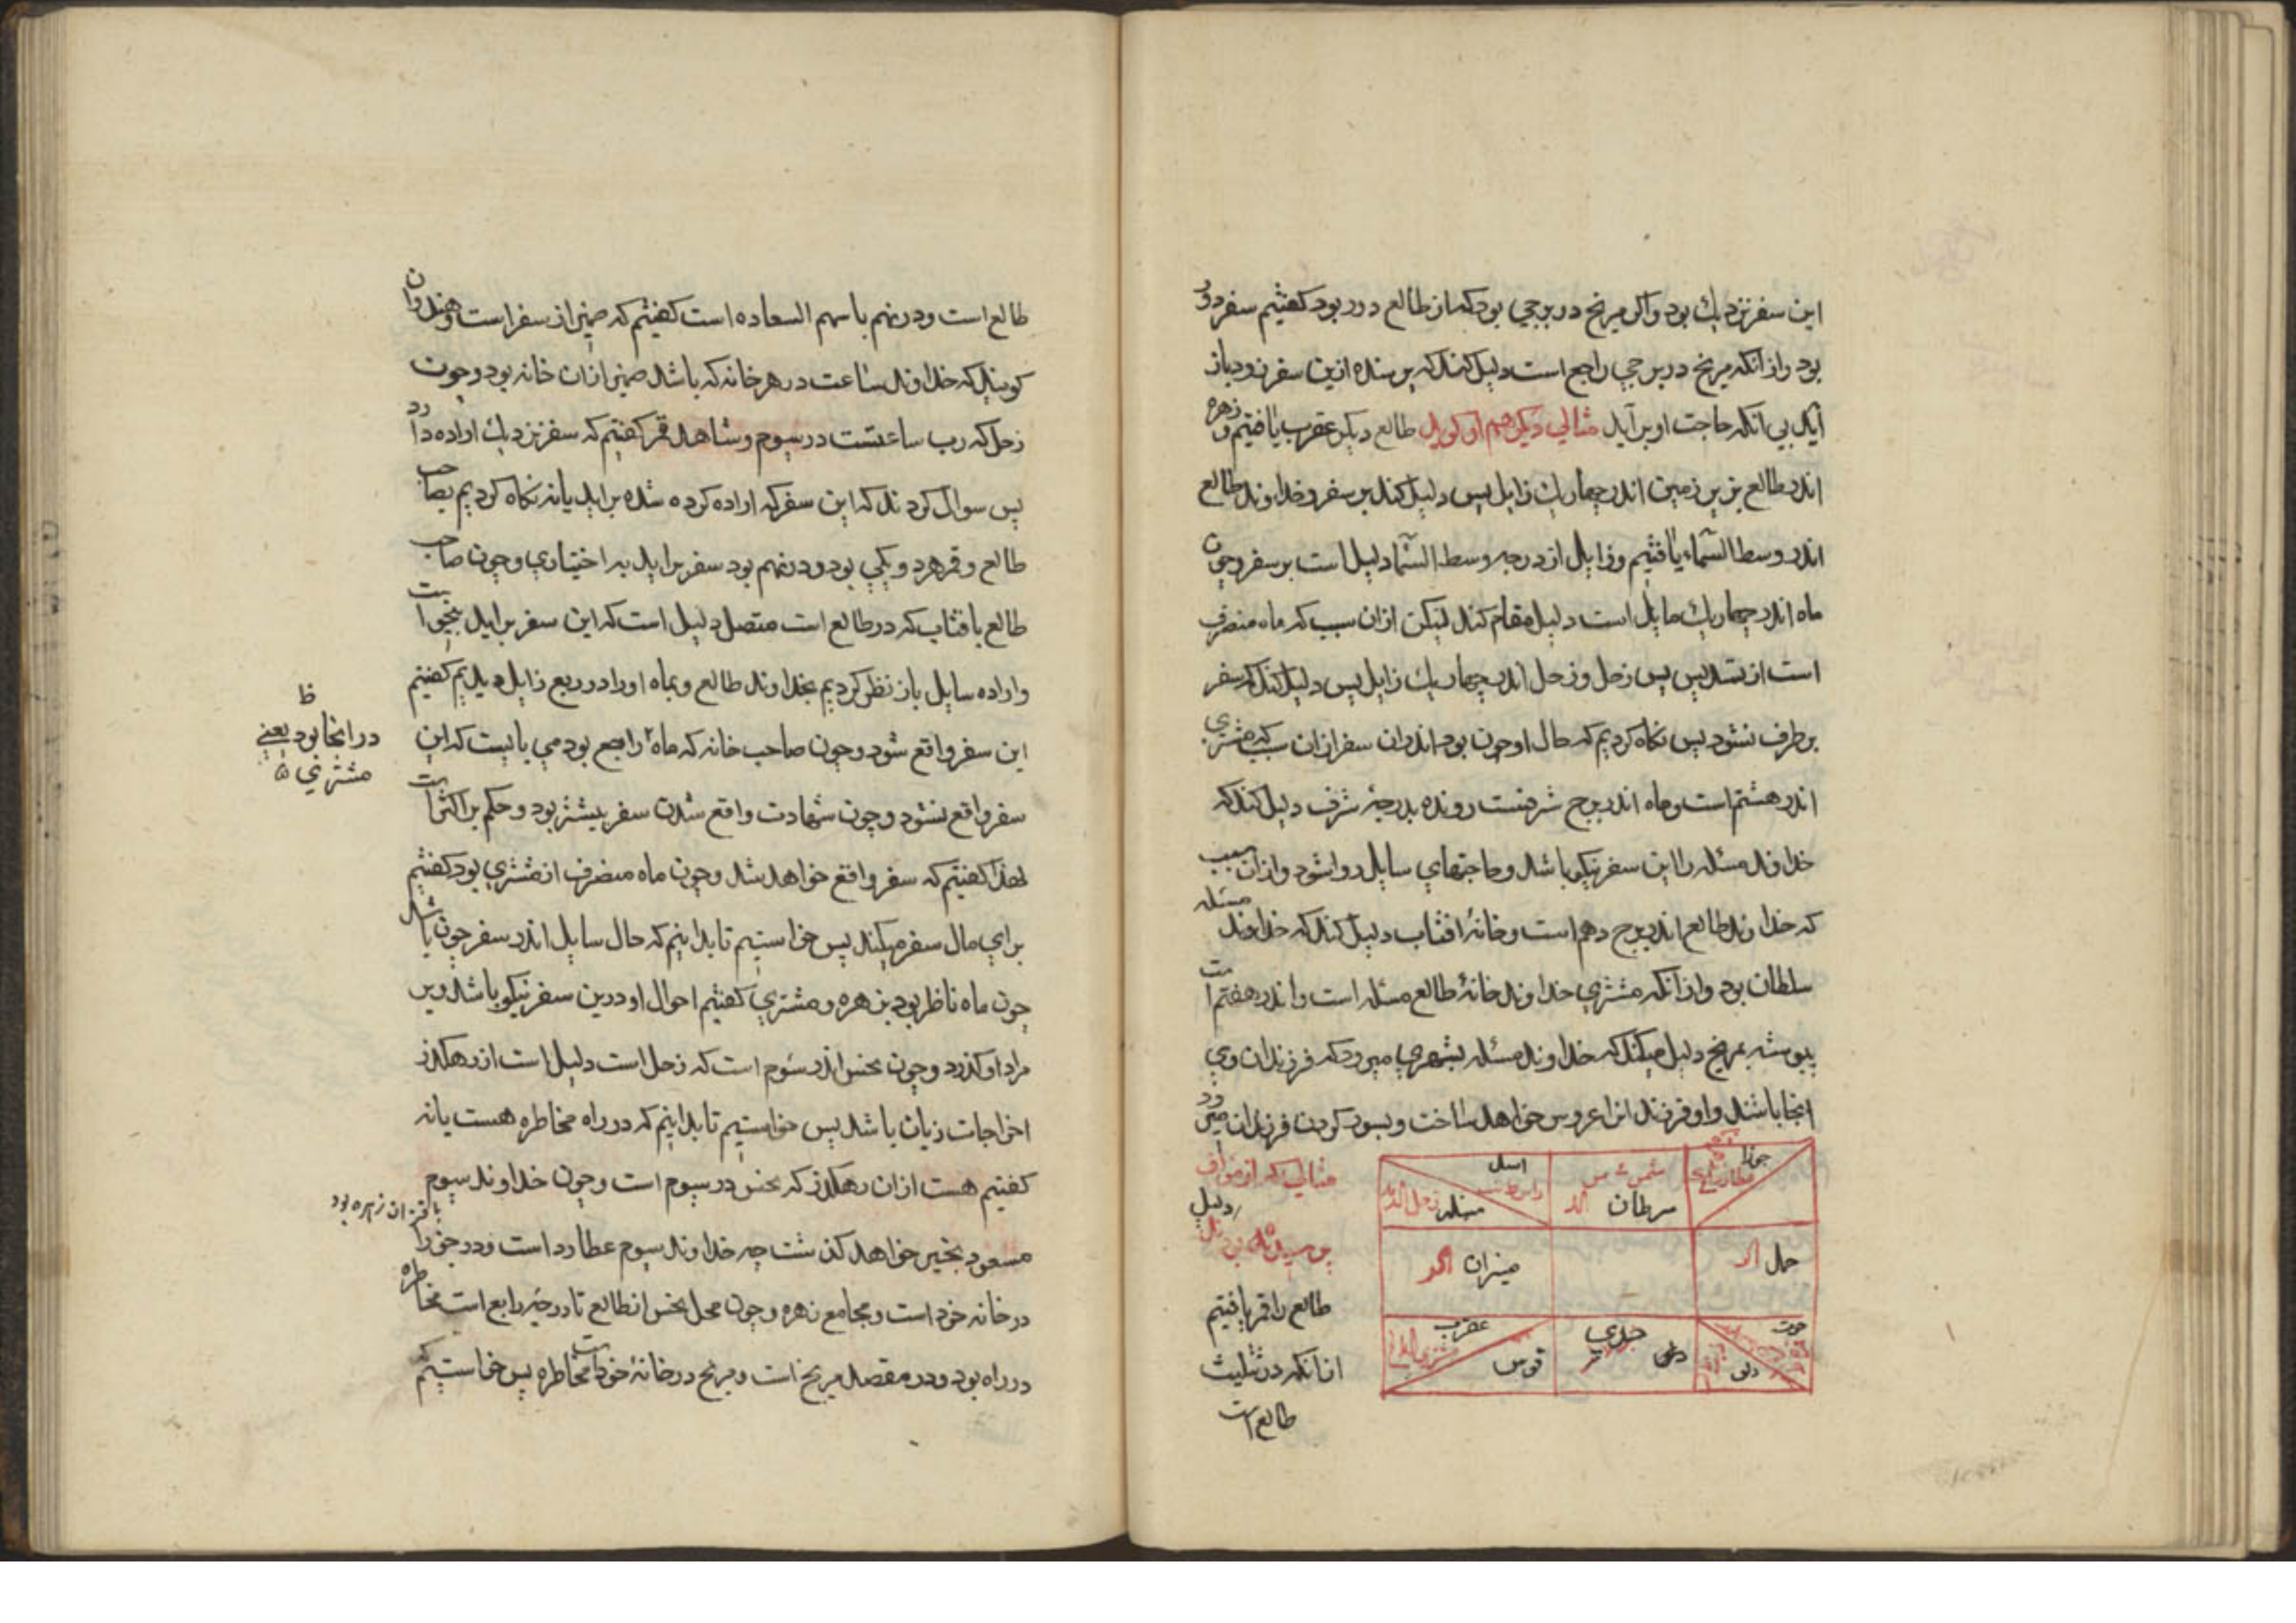 این سفر نزدیك بود و اكر مریخ در برجی بود كه از طالع دور بود كفتیم سفر دور
بود و از انكه مریخ در برجی راجع است دلیل كند كه پرسنده ازین سفر زود باز
آید بی انكه حاجت او بر آید مثالی دیكر هم او كوید طالع دیكر عقرب یافتیم و زهره
اندر طالع بزیر زمین اندر چهار یك زایل پس دلیل كند بر سفر و خداوند طالع
اندر وسط السماء یافتیم و زایل از درجه وسط السما دلیل است بر سفر و چون
ماه اندر چهار یك مایل است دلیل مقام كند لیكن ازان سبب كه ماه منصرف
است از تسدیس پس زحل و زحل اندر چهار یك زایل پس دلیل كند كه سفر
بر طرف نشود پس نكاه كردیم كه حال او چون بود اندران سفر ازان سبب كه مشتری
اندر هشتم است و ماه اندر برج شرفست رونده بدرجهٔ شرف دلیل كند كه
خداوند مسئله را این سفر نیكو باشد و حاجتهای سایل روا شود و ازان سبب
كه خداوند طالع اندر برج دهم است و خانهٔ افتاب دلیل كند كه خداوند مسئله
سلطان بود و از آنكه مشتری خداوند خانهٔ طالع مسئله است و اندر هفتم است
پیوسته بمریخ دلیل میكند كه خداوند مسئله بشهری میرود كه فرزندان وی
انجا باشند و او فرزند انرا عروس خواهد ساخت و بسود كردن فرزندان میرود
مثالی كه از مؤلف
دلیل
پرسیدند
طالع را قمر یافتیم
از انكه در تثلیث
طالع است
جوزا
شمس
سرطان
اسد
سنبله زحل
حمل
میزان
حوت
دلو
جدی
عقرب
قوس
طالع است و در نهم با سهم السعاده است كفتیم كه ضمیر از سفر است و هندوان
كویند كه خداوند ساعت در هر خانه كه باشد ضمیر ازان خانه بود و چون
زحل كه رب ساعتست در سیوم و شاهد قمر كفتیم كه سفر نزدیك اراده دارد
پس سوال كردند كه این سفر كه اراده كرده شده براید یا نه نكاه كردیم بصاحب
طالع و قمر هر دو یكی بود و در نهم بود سفر براید به اختیاری و چون صاحب
طالع بافتاب كه در طالع است متصل دلیل است كه این سفر براید بخواست
و اراده سایل باز نظر كردیم بخداوند طالع و بماه اورا در ربع زایل دیدیم كفتیم
این سفر واقع شود و چون صاحب خانه كه ماه راجع بود می بایست كه این
سفر واقع نشود و چون شهادت واقع شدن سفر بیشتر بود و حكم بر اكثر است
لهذا كفتیم كه سفر واقع خواهد شد و چون ماه منصرف از مشتری بود كفتیم
برای مال سفر میكند پس خواستیم تا بدانیم كه حال سایل اندر سفر چون باشد
چون ماه ناظر بود بزهره و مشتری كفتیم احوال او درین سفر نیكو باشد و بر
مراد او كذرد و چون نحس اندر سوم است كه زحل است دلیل است از رهكذر
اخراجات زیان باشد پس خواستیم تا بدانیم كه در راه مخاطره هست یا نه
كفتیم هست ازان رهكذر كه نحس در سیوم است و چون خداوند سیوم
باقتران زهره بود
مسعود بخیر خواهد كذشت چه خداوند سیوم عطارد است و در جوزا
در خانه خود است و مجامع زهره و چون محل نحس از طالع تا درجهٔ رابع است مخاطره
در راه بود و در مقصد مریخ است و مریخ در خانهٔ خود است مخاطره پس خواستیم كه
ظ
در انجا بود یعنی
مشتری